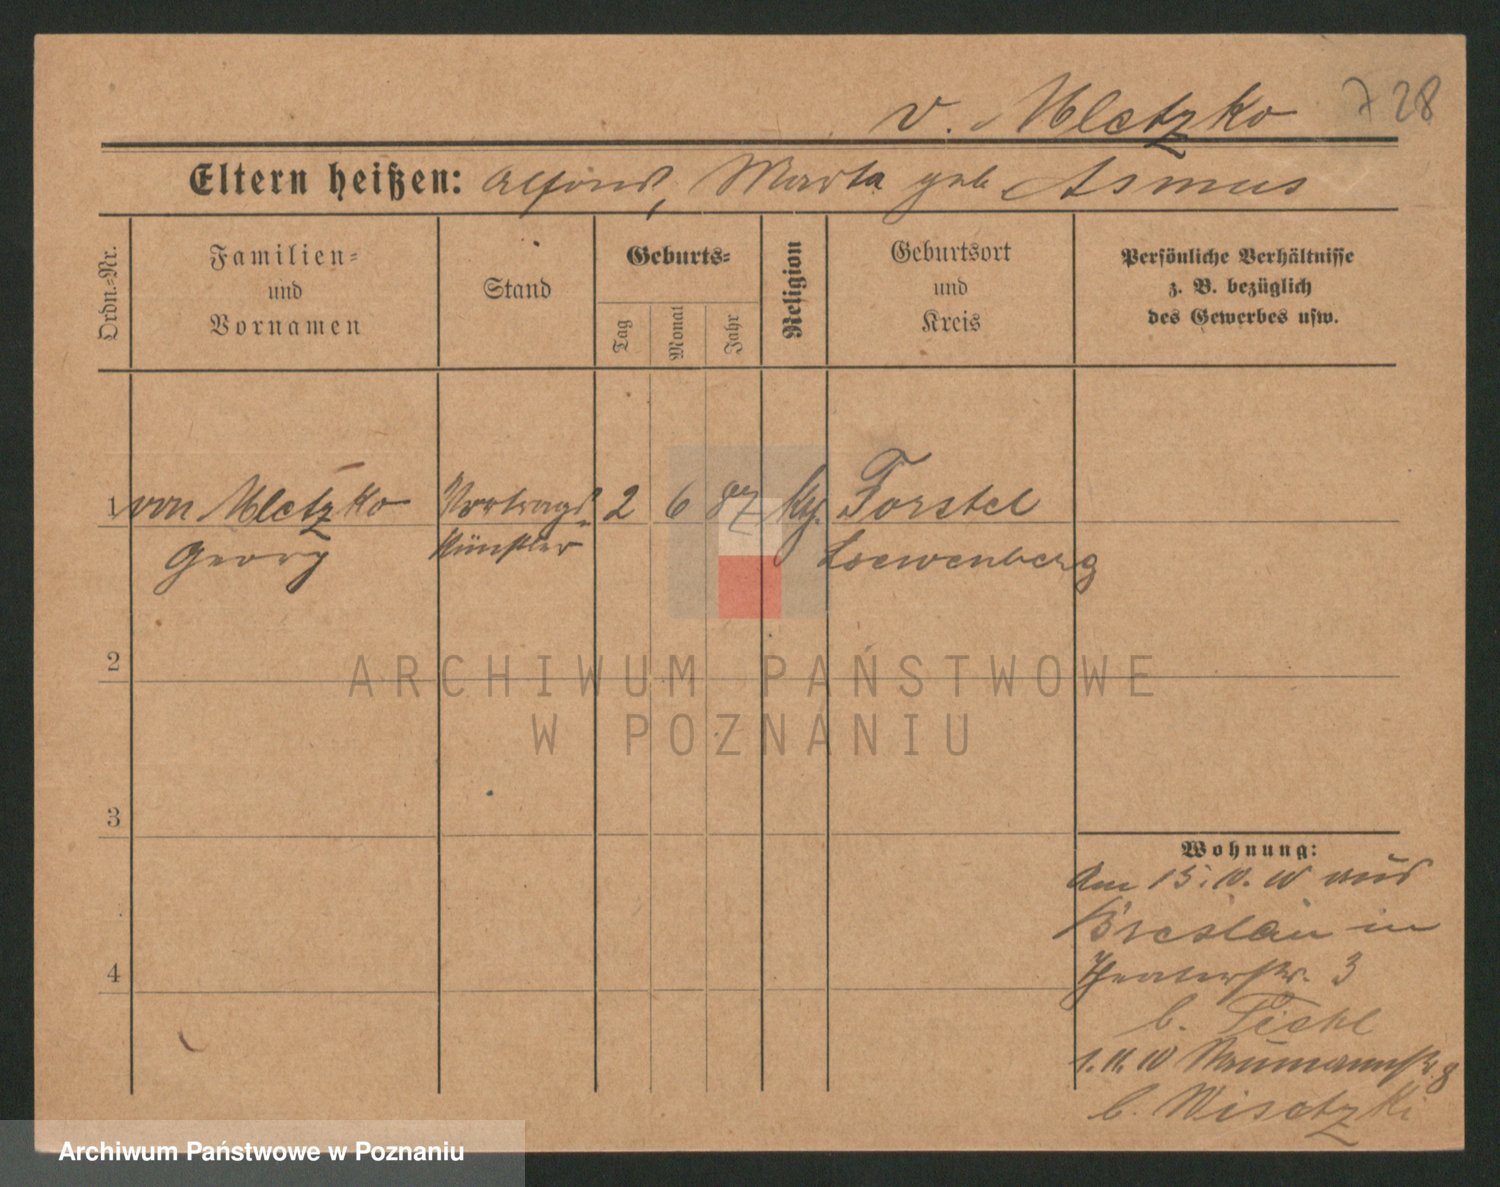 v. Mletzko 728
Eltern heißen: Alfons, Marta geb. Asmus
Ordn.-Nr.
Familien-
und
Vornamen
Stand
Geburts-
Tag
Monat
Jahr
Religion
Geburtsort
und
Kreis
Persönliche Verhältnisse
z. B. bezüglich
des Gewerbes usw.
1 von Mletzko Vortrags- 2 6 87 Forstel
Georg Künstler Loewenberg
2
3
4
Wohnung:
Am 15. IV. 10 aus
Breslau in
Theaterstr. 3
b.
Naumannstr. 8
b. Wisotzki
ARCHIWUM PAŃSTWOWE
W POZNANIU
Archiwum Państwowe w Poznaniu